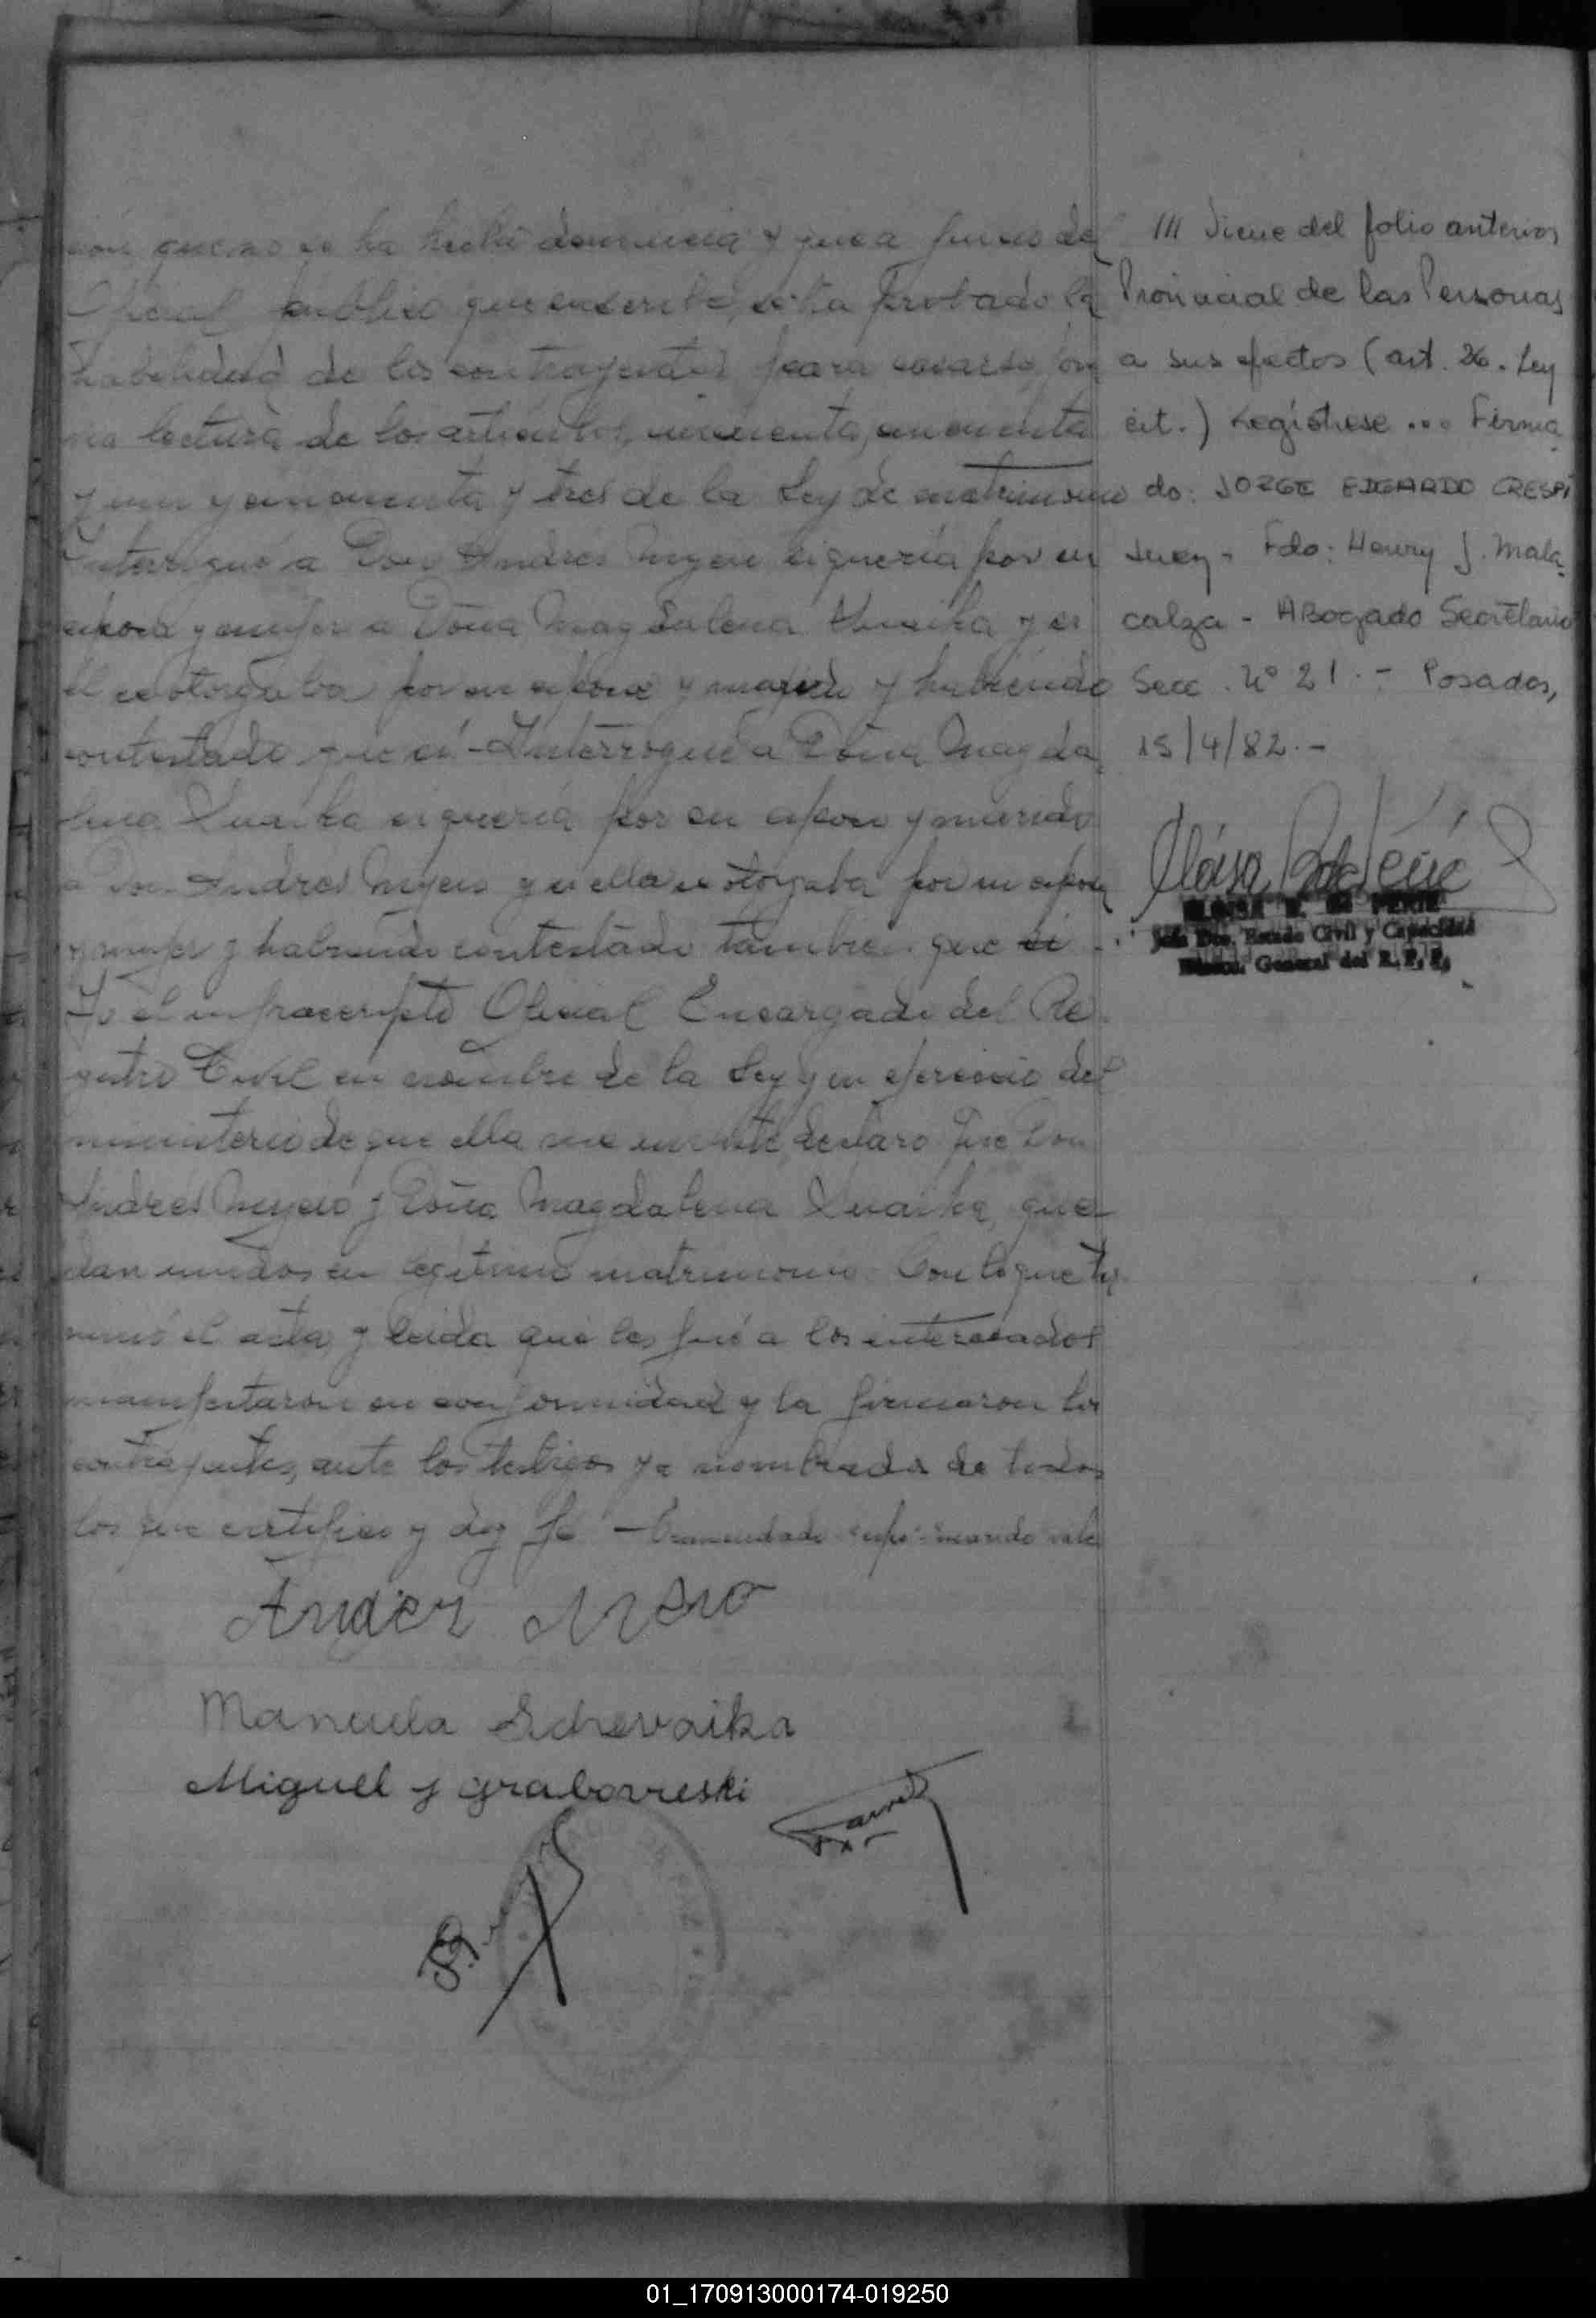 ción que no se ha hecho denuncia y que a juicio del
Oficial público que suscribe, se ha probado la
habilidad de los contrayentes para casarse
via lectura de los artículos, cincuenta, cincuenta
y uno y cincuenta y tres de la Ley de matrimonio
Interrogué a Don Andres si quería por su
esposa y mujer a Doña Magdalena y si
él se otorgaba por su esposo y marido y habiendo
contestado que sí - Interrogué a Doña Magda
lena si quería por su esposo y marido
a Don Andres y si ella se otorgaba por su esposa
y mujer y habiendo contestado tambien que si -
Yo el infrascripto Oficial Encargado del Re
gistro Civil en nombre de la Ley y en ejercicio del
ministerio de que ella me inviste declaro que Don
Andrés y Doña Magdalena que
dan unidos en legítimo matrimonio. Con lo que ter
minó el acta y leida que les fué a los interesados
manifestaron su conformidad y la firmaron los
contrayentes, ante los testigos ya nombrados de todos
los que certifico y doy fé - Enmendado
Manuela Schevaika
Miguel y grabovreski
/// Viene del folio anterior
Provincial de las Personas
a sus efectos (art. 26. Ley
cit.) Regístrese ... Firma
do: JORGE EDGARDO CRESPI
Juez - Fdo: Henry J. Mala
calza - Abogado Secretario
Sec. Nº 21.- Posadas,
15/4/82.-
Jefe Dto. Estado Civil y Capacidad
General del R. P. P.
01_170913000174-019250